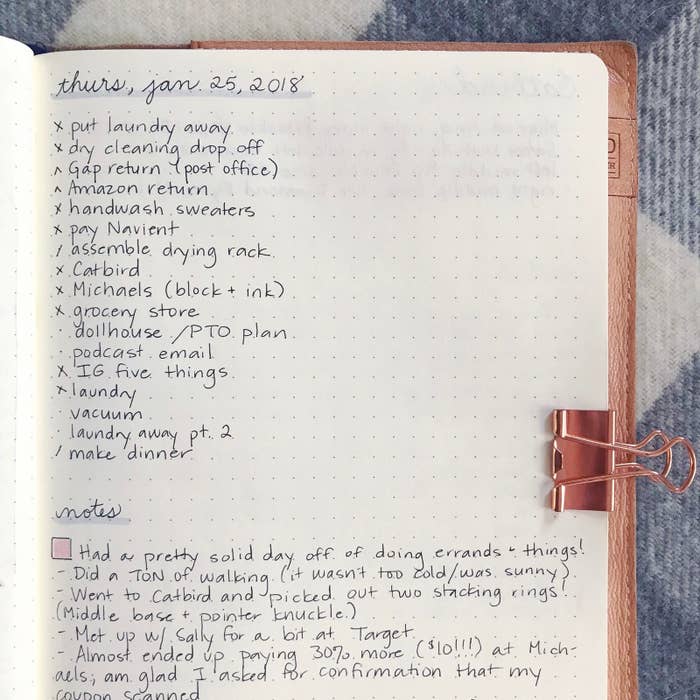 thurs, jan. 25, 2018
x put laundry away.
x dry cleaning drop off
^ Gap return (post office)
^ Amazon return
x handwash sweaters
x pay Navient
/ assemble drying rack
x Catbird
x Michaels (block + ink)
x grocery store
· dollhouse / PTO plan
· podcast email
x IG five things
x laundry
· vacuum
· laundry away pt. 2
/ make dinner
notes
Had a pretty solid day off of doing errands + things!
- Did a TON of walking (it wasn't too cold/was sunny).
- Went to Catbird and picked out two stacking rings!
(Middle base + pointer knuckle.)
- Met up w/ Sally for a bit at Target.
- Almost ended up paying 30% more ($10!!!) at Mich-
aels; am glad I asked for confirmation that my
coupon scanned